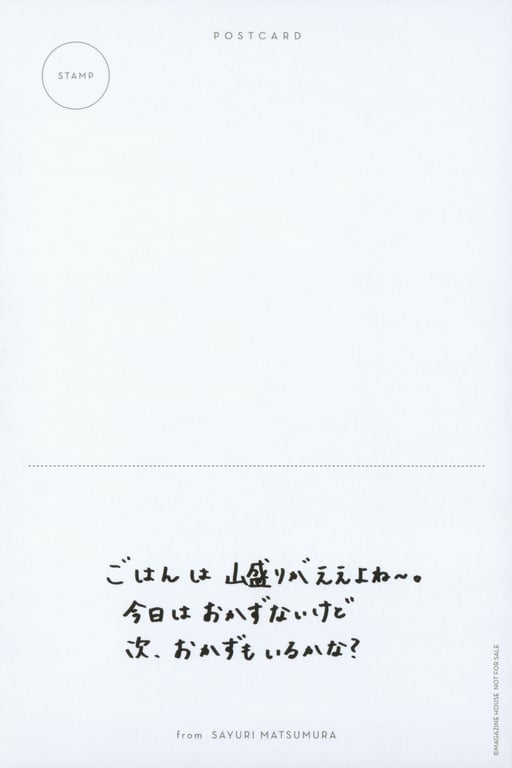 POSTCARD
STAMP
ごはんは 山盛りが ええよね〜。
今日は おかずないけど
次、おかずも いるかな?
from SAYURI MATSUMURA
©MAGAZINE HOUSE NOT FOR SALE